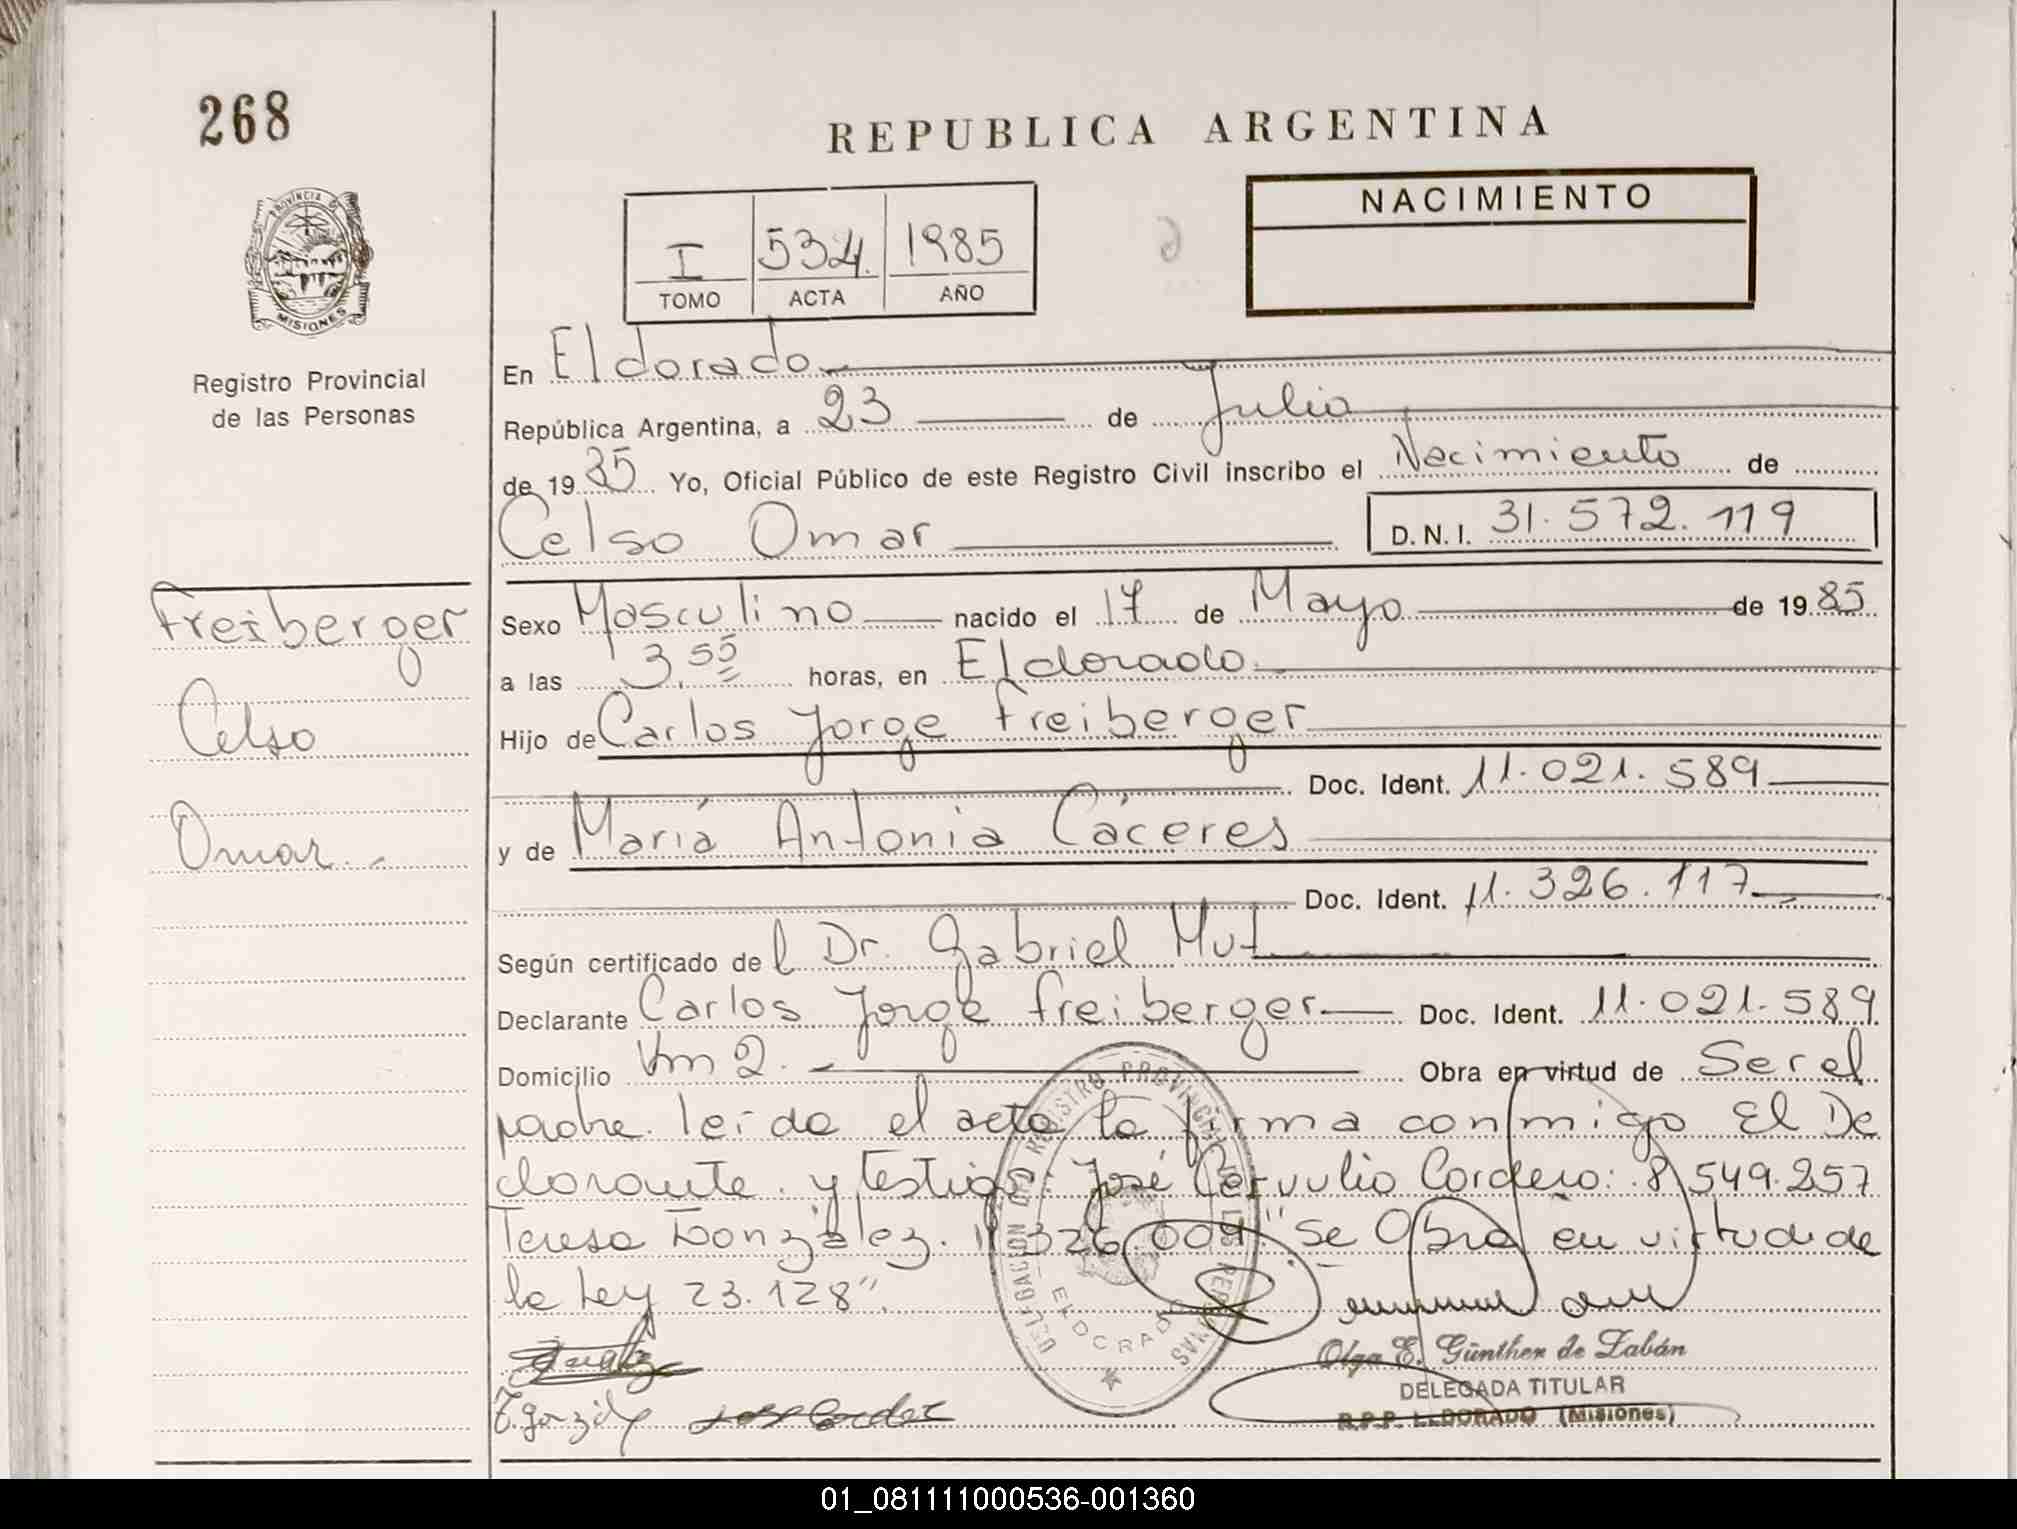 268
REPUBLICA ARGENTINA
PROVINCIA D
MISIONES
Registro Provincial
de las Personas
NACIMIENTO
I 534. 1985
TOMO ACTA AÑO
En Eldorado
República Argentina, a 23 de Julio
de 1985 Yo, Oficial Público de este Registro Civil inscribo el Nacimiento de
Celso Omar D. N. I. 31.572.119
Freiberger
Celso
Omar.-
Sexo Masculino nacido el 17 de Mayo de 1985
a las 3,55 horas, en Eldorado
Hijo de Carlos Jorge Freiberger
Doc. Ident. 11.021.589
y de María Antonia Cáceres
Doc. Ident. 11.326.117
Según certificado del Dr. Gabriel Mut
Declarante Carlos Jorge Freiberger Doc. Ident. 11.021.589
Domicilio Km 2. Obra en virtud de Ser el
padre. leída el acta la firma conmigo El De
clarante. y testigos José Cervulio Cordero: 8.549.257
Teresa González. 11.326.009 "Se Obra en virtud de
la Ley 23.128".
DELEGACION DEL REGISTRO PROVINCIAL DE LAS PERSONAS
ELDORADO
Olga E. Günther de Zabán
DELEGADA TITULAR
R.P.P. ELDORADO (Misiones)
T. González Jose Cordero
01_081111000536-001360